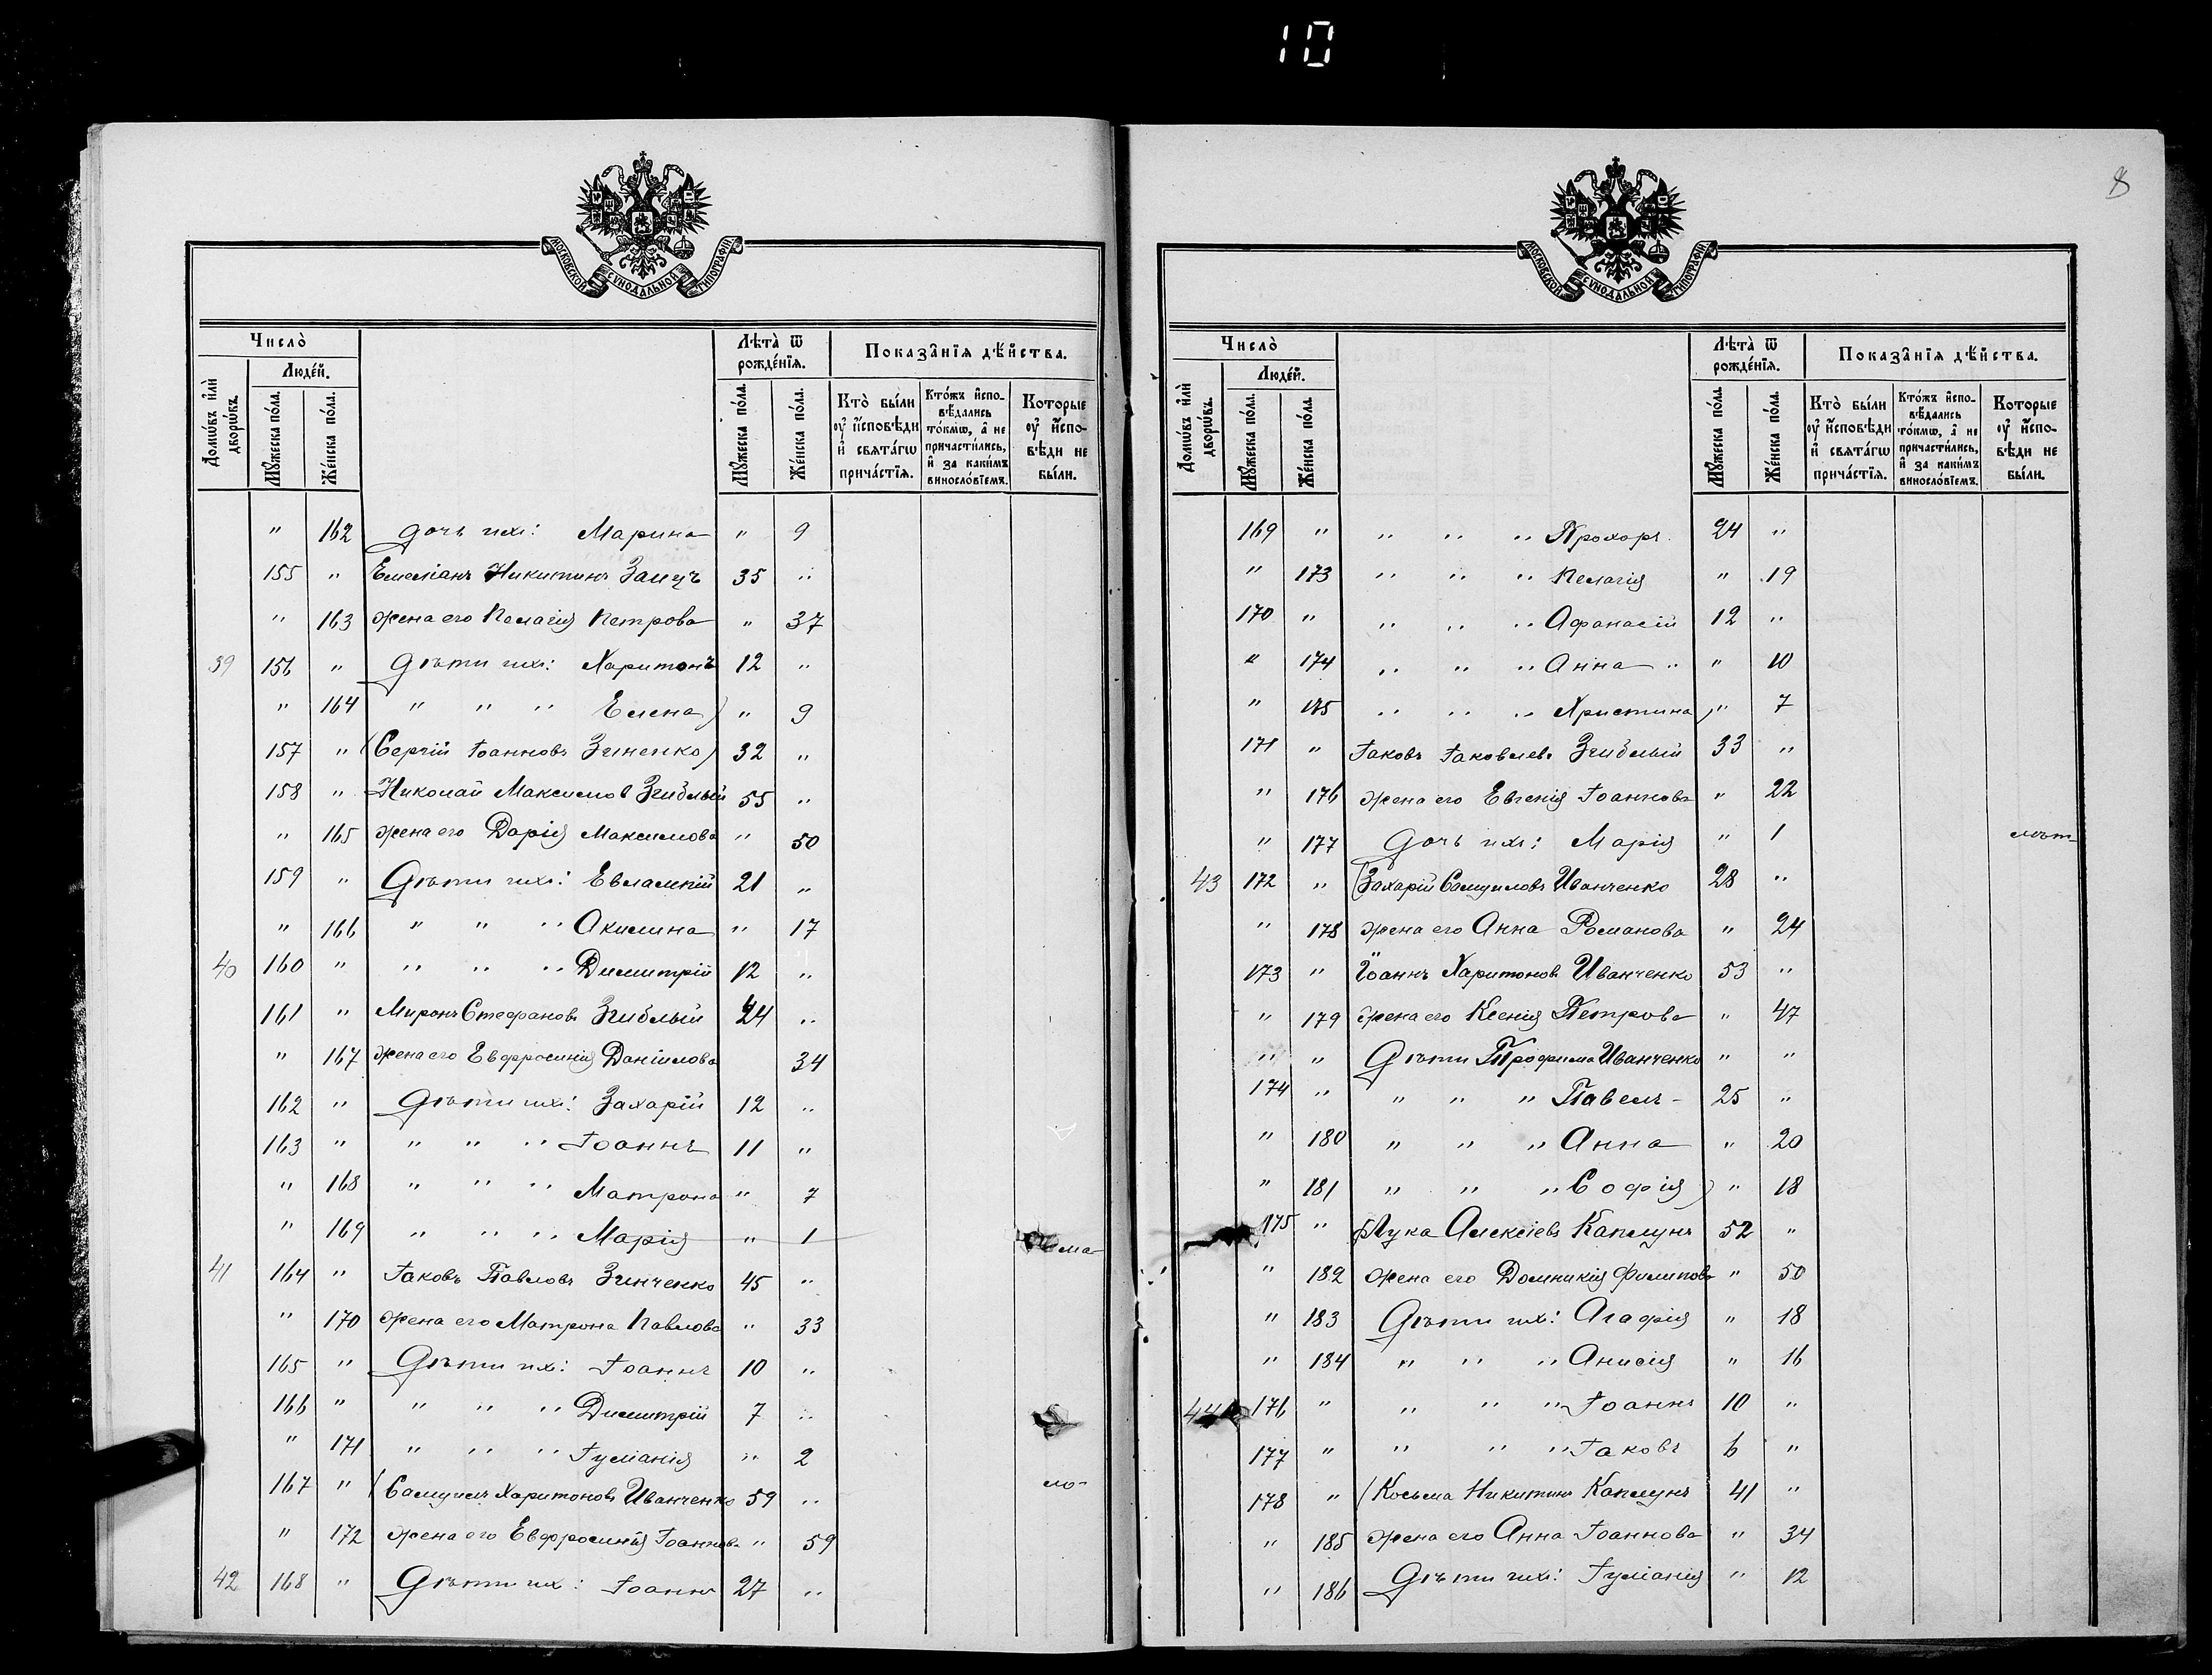 10
8
МОСКОВСКОЙ СѴНОДАЛЬНОЙ ТИПОГРАФІИ.
Число̀
Людéй.
Домѡ́въ и҆лѝ дворѡ́въ.
Мꙋ́жеска по́ла.
Же́нска по́ла.
Лѣта̀ ѿ рожде́нїѧ.
Мꙋ́жеска по́ла.
Же́нска по́ла.
Показа̑нїѧ дѣ́йства.
Кто̀ бы́ли ᲂу҆ и҆сповѣ́ди и҆ свѧта́гѡ прича́стїѧ.
Кто́жъ и҆спо-вѣ́дались то́кмѡ, а҆ не причасти́лись, и҆ за каки́мъ винослѡ́вїемъ.
Которые ᲂу҆ и҆спо-вѣ́ди не бы́ли.
" 162 дочь ихъ: Марина " 9
155 " Емеліанъ Никитинъ Заецъ 35 "
" 163 жена его Пелагія Петрова " 37
39 156 " Дѣти ихъ: Харитонъ 12 "
" 164 " " " Елена) " 9
157 " (Сергій Іоанновъ Зиненко) 32 "
158 " Николай Максимов Згиблый 55 "
" 165 жена его Дарія Максимова " 50
159 " Дѣти ихъ: Евлампій 21 "
" 166 " " " Акилина " 17
40 160 " " " " Димитрій 12 "
161 " Миронъ Стефановъ Згиблый 24 "
" 167 жена его Евфросинія Даніилова 34
162 " Дѣти ихъ: Захарій 12 "
163 " " " " Іоаннъ 11 "
" 168 " " " Матрона " 7
" 169 " " " Марія " 1 ма-
41 164 " Іаковъ Павловъ Зинченко 45 "
" 170 жена его Матрона Павлова " 33
165 " Дѣти ихъ: Іоаннъ 10 "
166 " " " " Димитрій 7 "
" 171 " " " Іуліанія " 2
167 " (Самуилъ Харитоновъ Иванченко 59 " ло-
" 172 жена его Евфросинія Іоаннова " 59
42 168 " Дѣти ихъ: Іоаннъ 27 "
МОСКОВСКОЙ СѴНОДАЛЬНОЙ ТИПОГРАФІИ.
Число̀
Людéй.
Домѡ́въ и҆лѝ дворѡ́въ.
Мꙋ́жеска по́ла.
Же́нска по́ла.
Лѣта̀ ѿ рожде́нїѧ.
Мꙋ́жеска по́ла.
Же́нска по́ла.
Показа̑нїѧ дѣ́йства.
Кто̀ бы́ли ᲂу҆ и҆сповѣ́ди и҆ свѧта́гѡ прича́стїѧ.
Кто́жъ и҆спо-вѣ́дались то́кмѡ, а҆ не причасти́лись, и҆ за каки́мъ винослѡ́вїемъ.
Которые ᲂу҆ и҆спо-вѣ́ди не бы́ли.
169 " " " " Прохоръ 24 "
" 173 " " " Пелагія " 19
170 " " " " Афанасій 12 "
" 174 " " " Анна " " 10
" 175 " " " Христина) " 7
171 " Іаковъ Іаковлевъ Згиблый 33 "
" 176 жена его Евгенія Іоаннова " 22
" 177 дочь ихъ: Марія " 1
43 172 " (Захарій Самуиловъ Иванченко 28 "
" 178 жена его Анна Романова " 24
173 " Іоаннъ Харитоновъ Иванченко 53 "
" 179 жена его Ксенія Петрова " 47
" " Дѣти Трофима Иванченко " "
174 " " " " Павелъ - 25 "
" 180 " " " Анна " 20
" 181 " " " Софія) " 18
175 " (Лука Алексіевъ Каплунъ 52 "
" 182 жена его Домникія Филипова " 50
" 183 Дѣти ихъ: Агафія " 18
" 184 " " " Анисія " 16
44 176 " " " " Іоаннъ 10 "
177 " " " " Іаковъ 6 "
178 " (Косьма Никитинъ Каплунъ 41 "
" 185 жена его Анна Іоаннова " 34
" 186 Дѣти ихъ: Іуліанія " 12